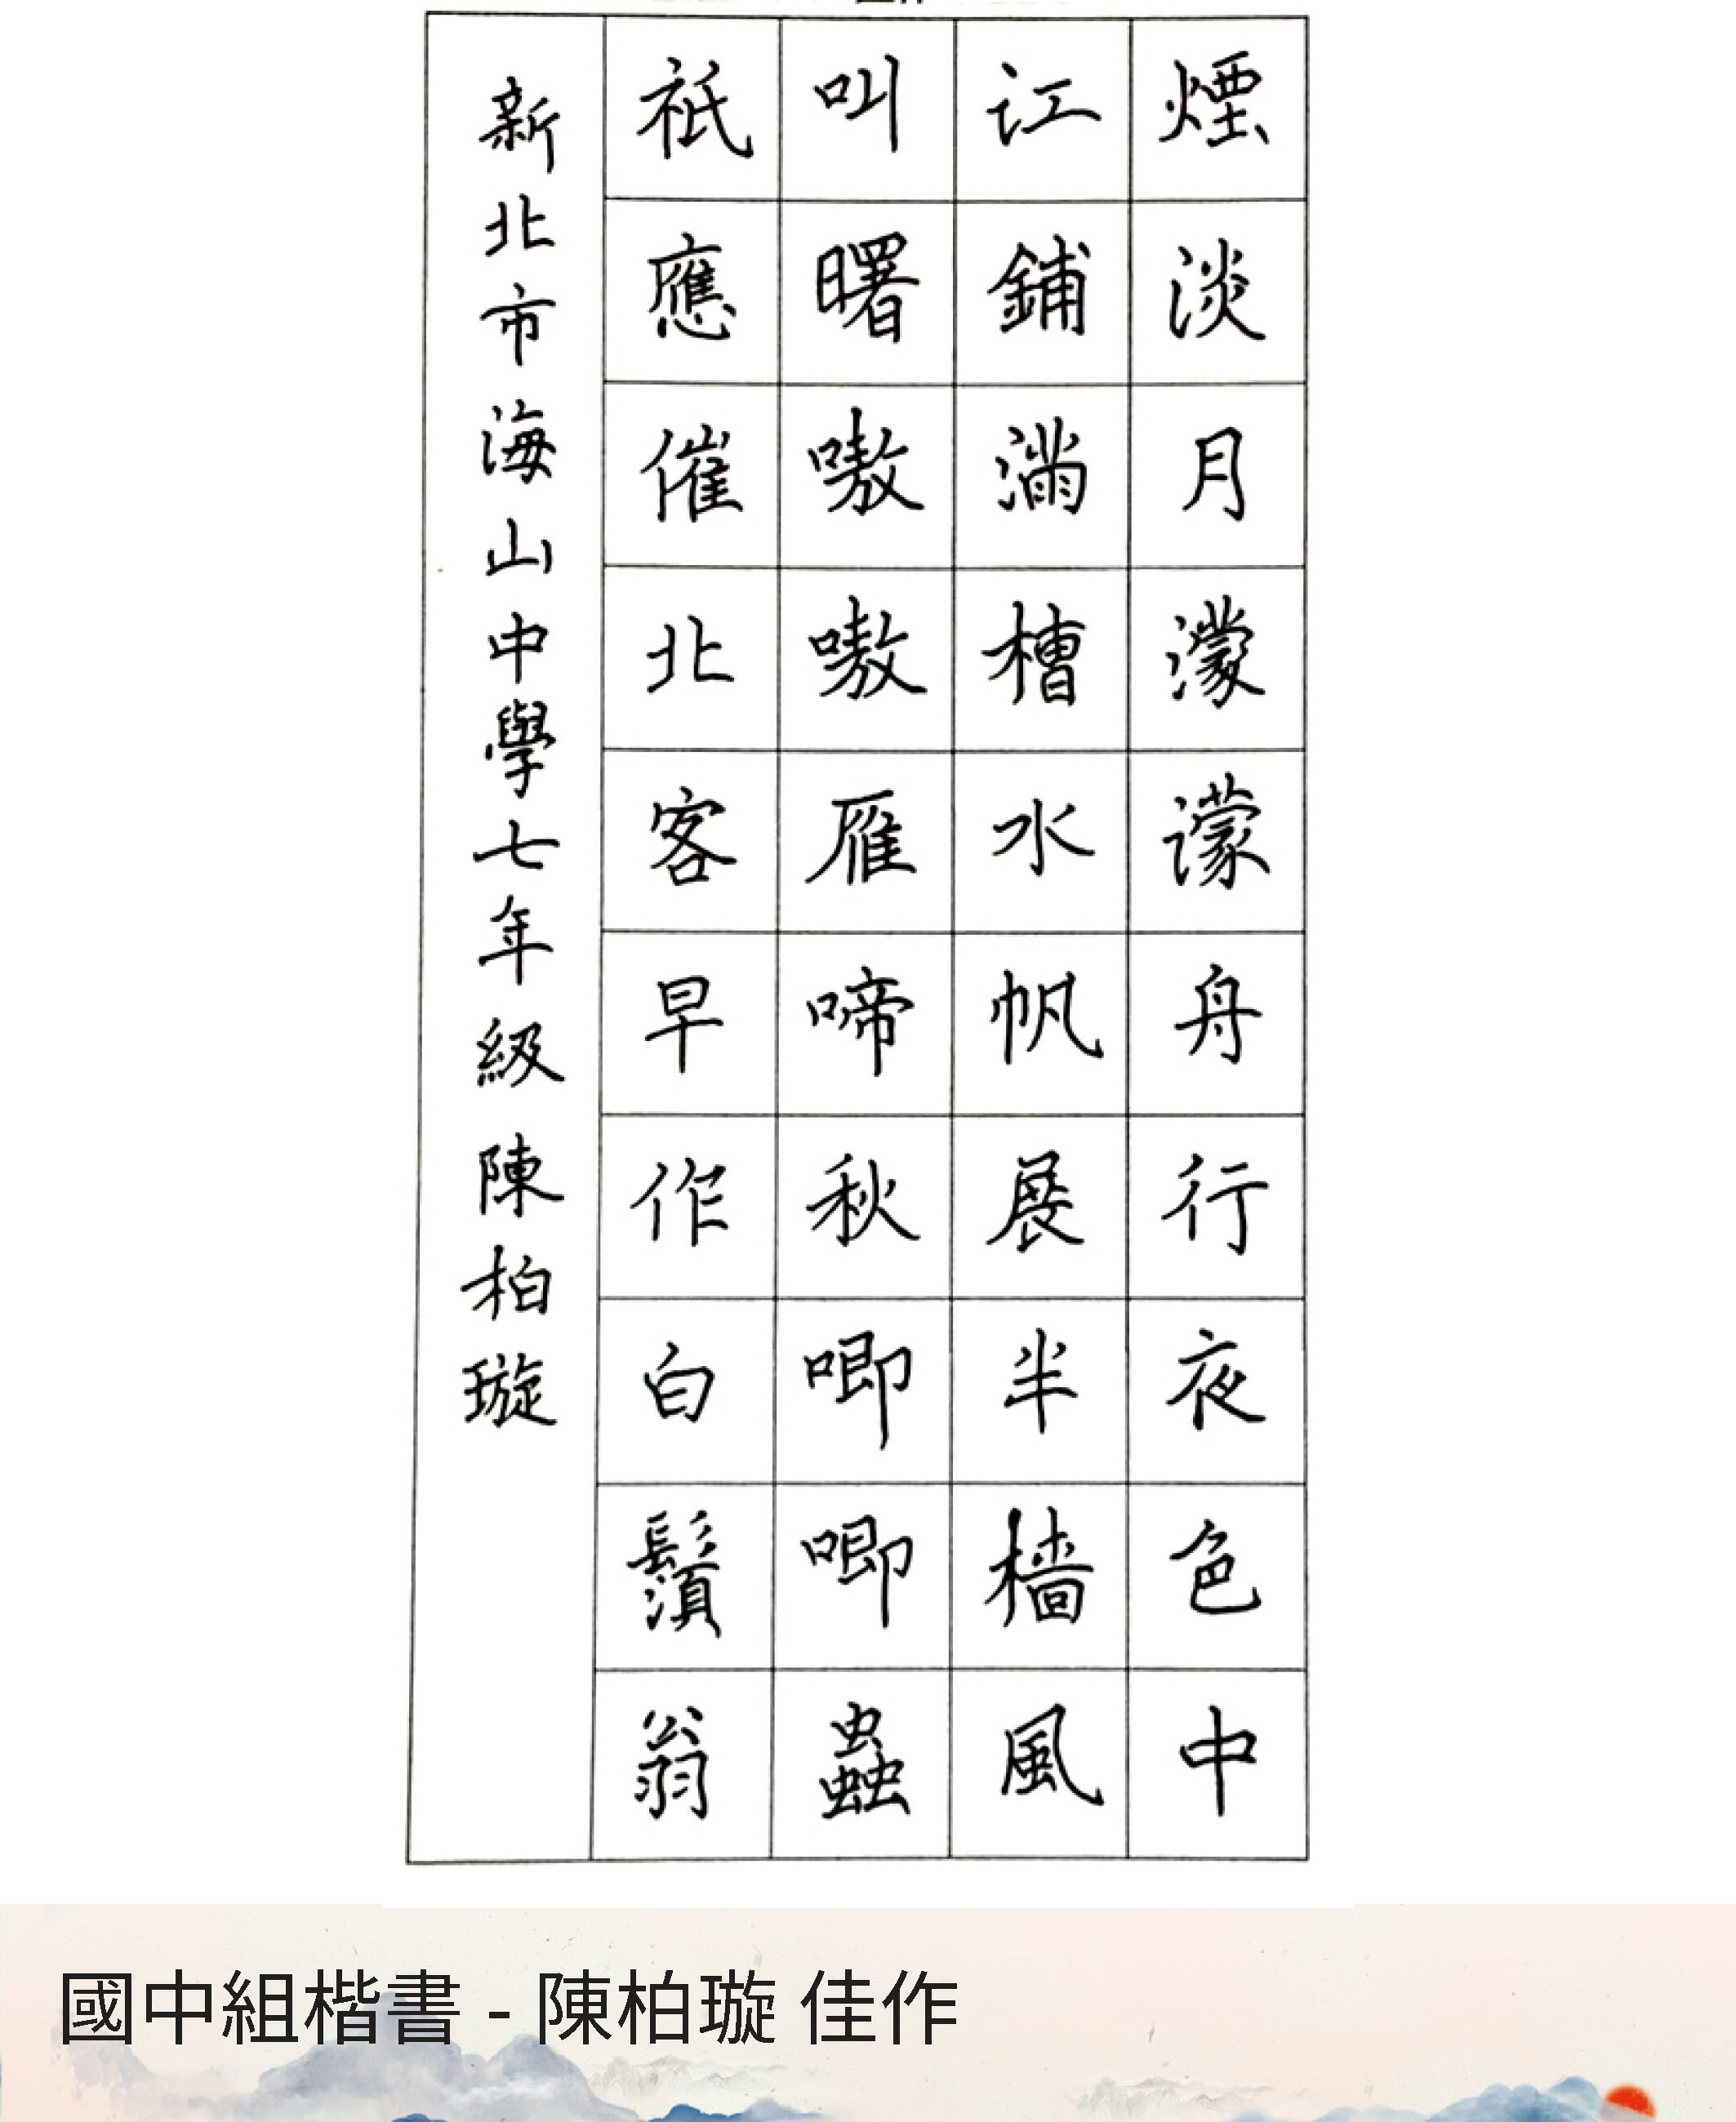 煙淡月濛濛舟行夜色中
江鋪滿槽水帆展半檣風
叫曙嗷嗷雁啼秋唧唧蟲
祇應催北客早作白鬚翁
新北市海山中學七年級陳柏璇
國中組楷書 - 陳柏璇 佳作